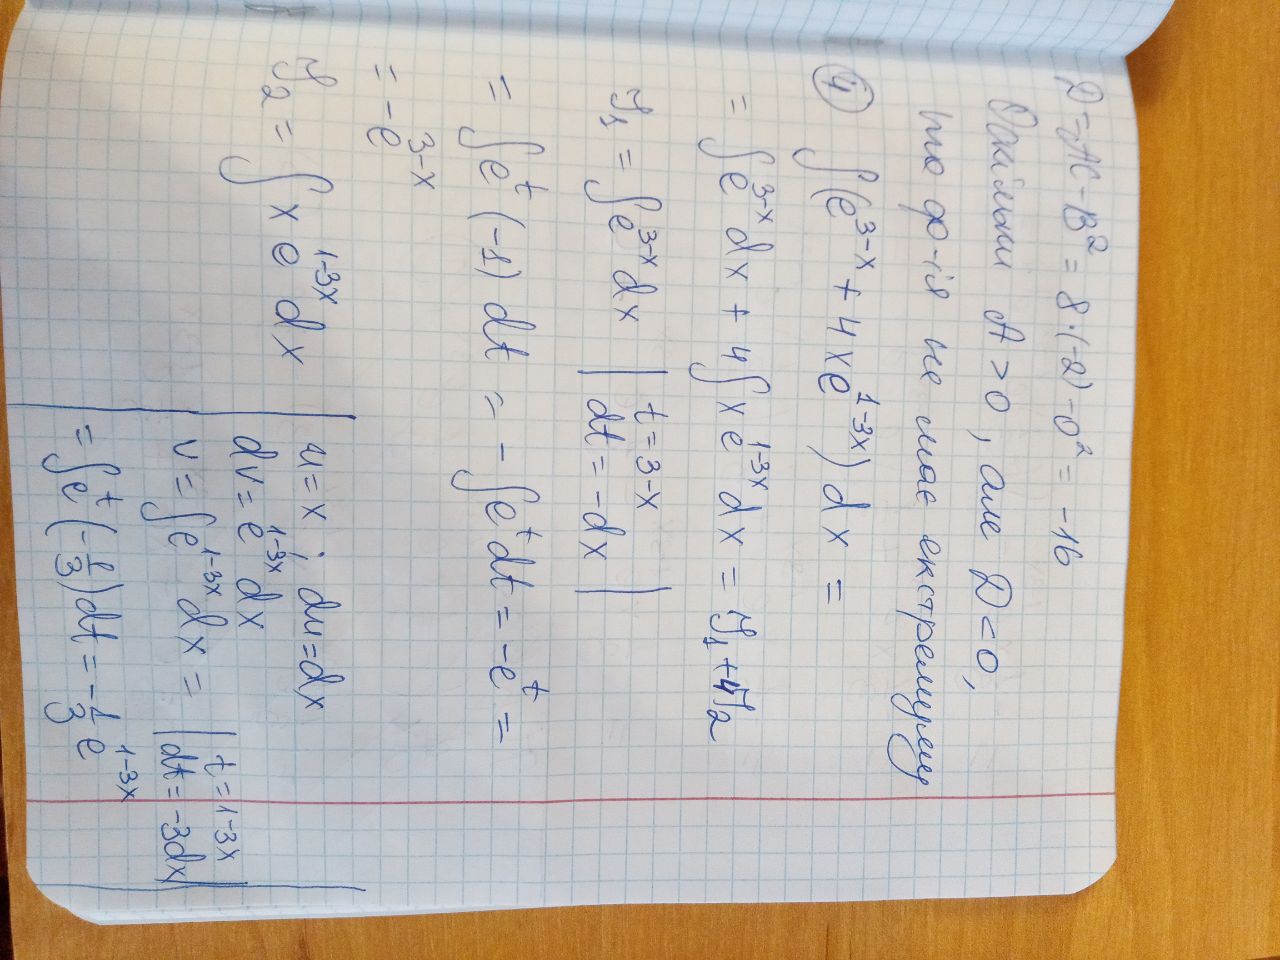 D = AC - B² = 8·(-2) - 0² = -16
Оскільки A > 0, але D < 0,
то ф-ія не має екстремуму
④ ∫(e^{3-x} + 4xe^{1-3x})dx =
= ∫e^{3-x}dx + 4∫xe^{1-3x}dx = Y₁ + 4Y₂
Y₁ = ∫e^{3-x}dx | t = 3-x
dt = -dx |
= ∫e^t(-1)dt = -∫e^t dt = -e^t =
= -e^{3-x}
Y₂ = ∫xe^{1-3x}dx | u = x; du = dx
dv = e^{1-3x}dx
v = ∫e^{1-3x}dx = | t = 1-3x
dt = -3dx |
= ∫e^t(-1/3)dt = -1/3 e^{1-3x}